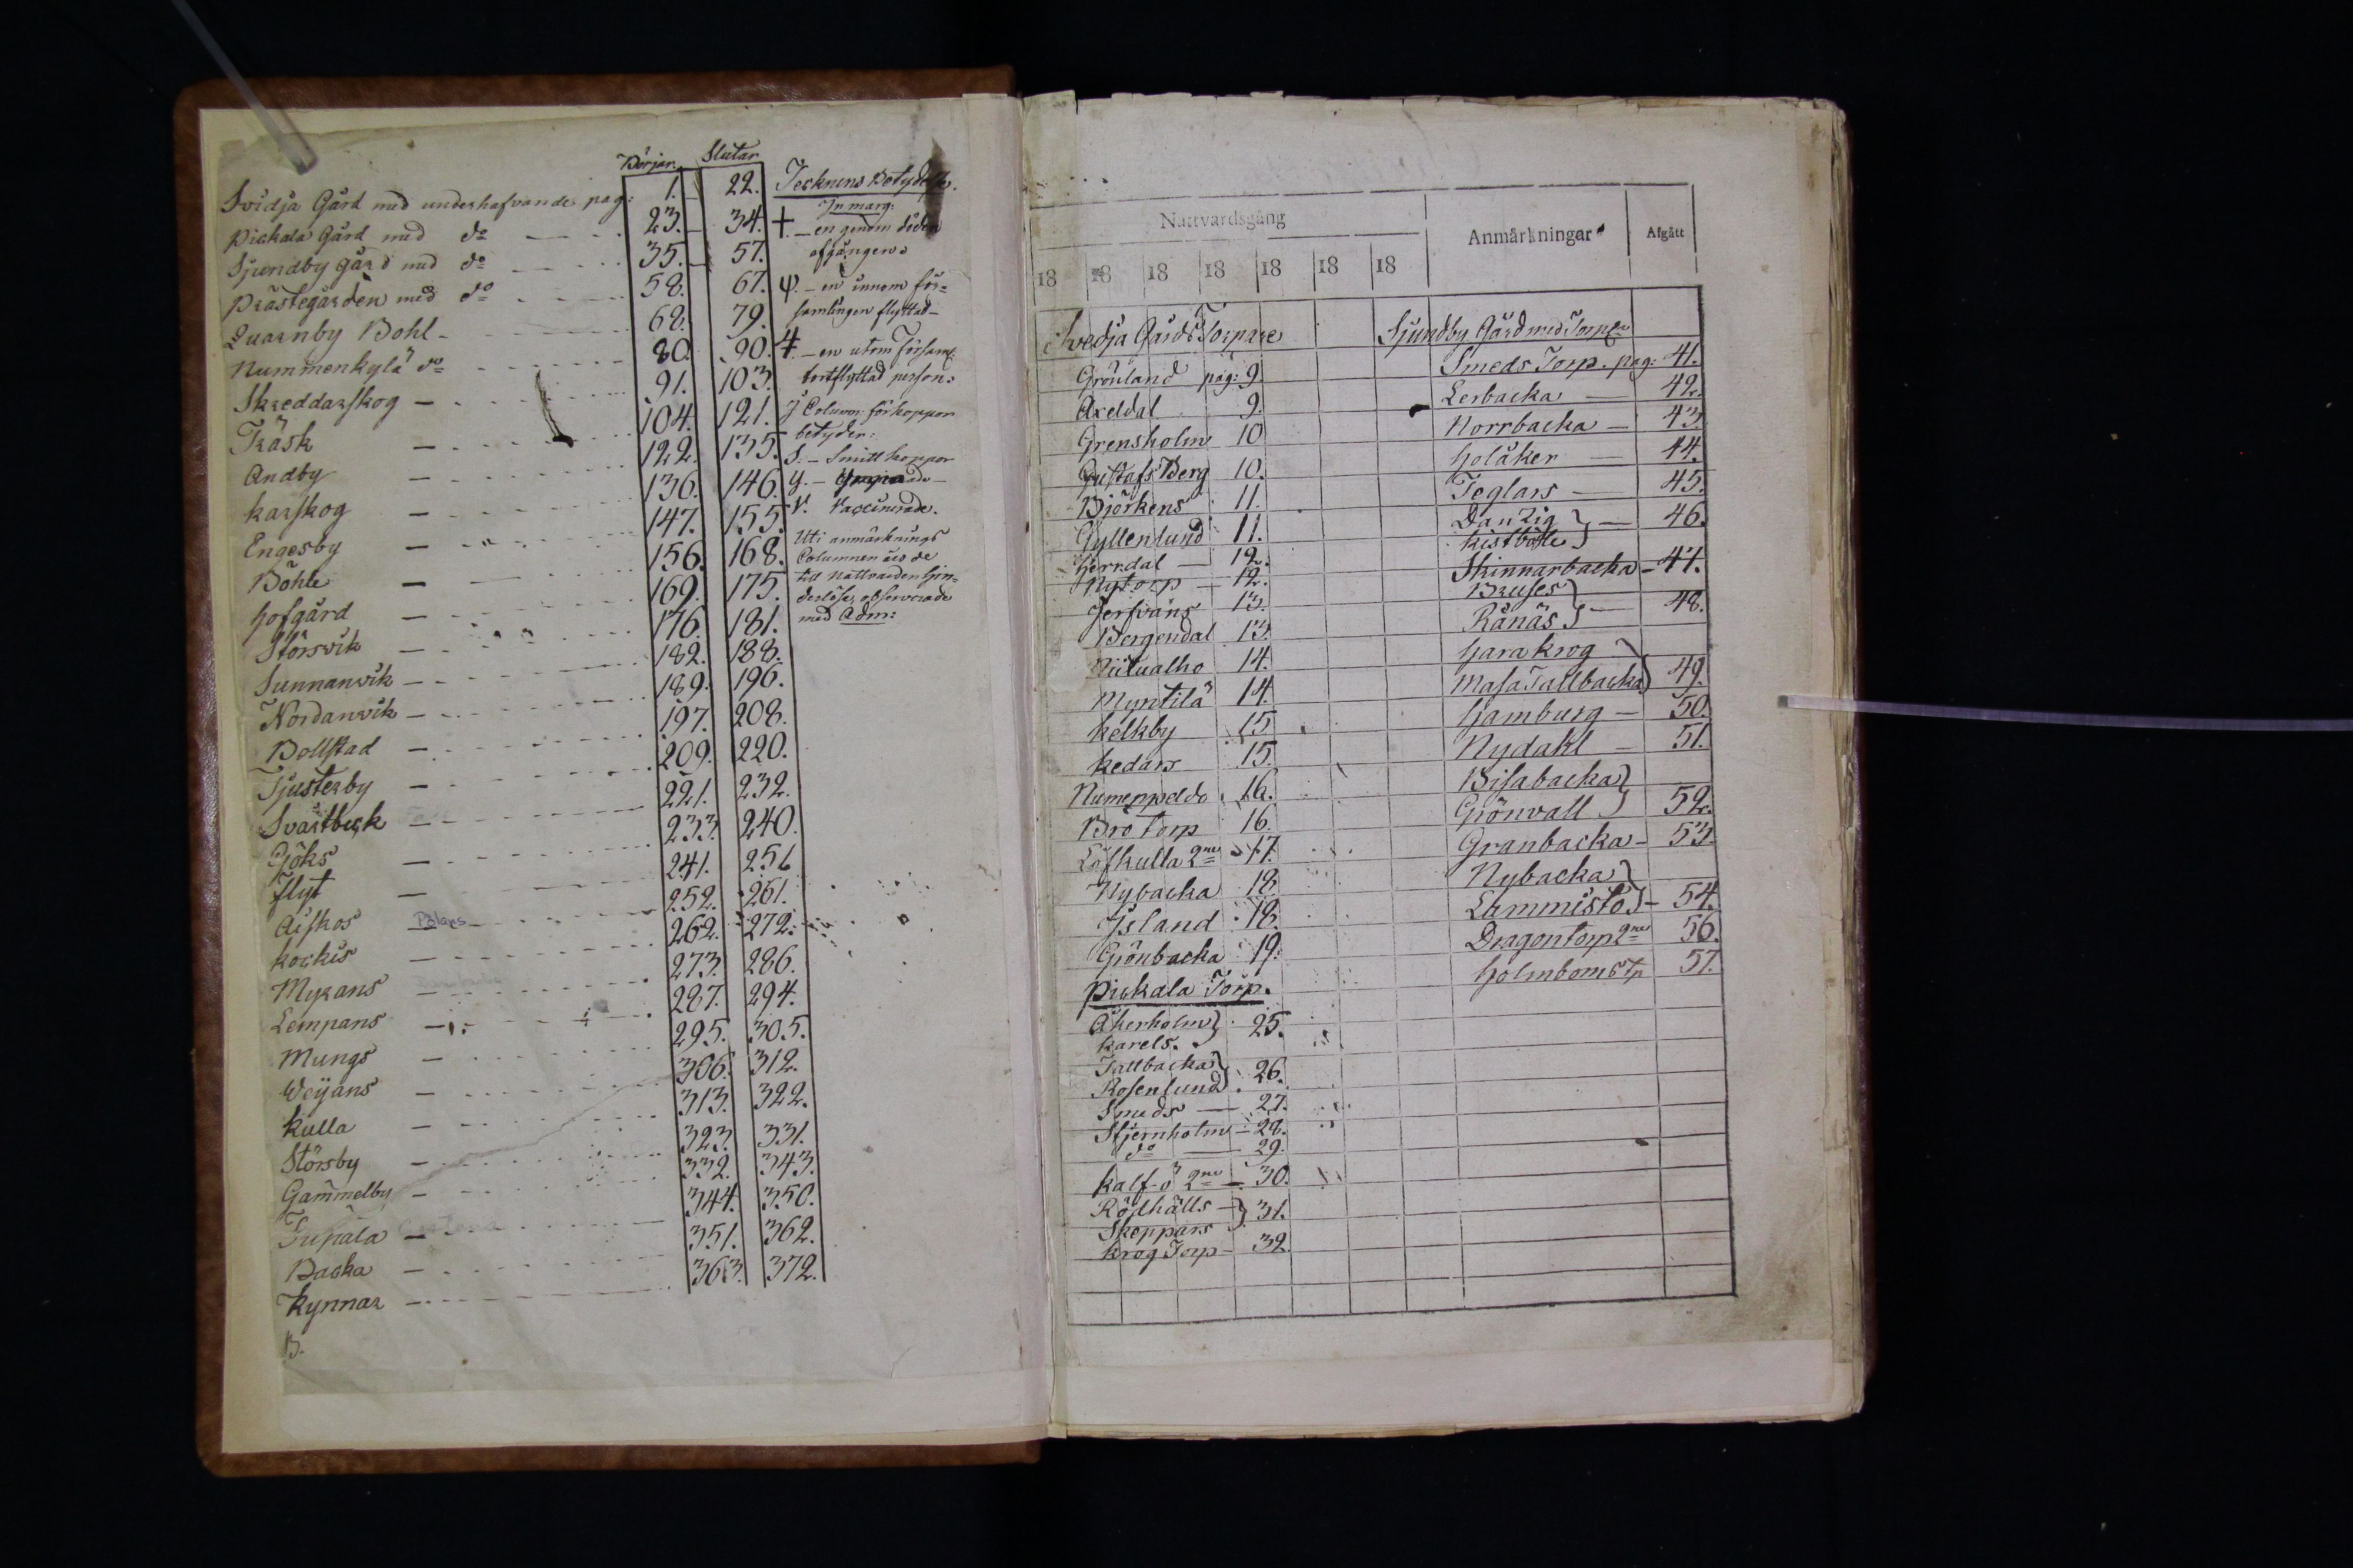 Börjar. Slutar
Svidja Gård med underhafvande pag: 1. 22.
Pickala Gård med do 23. 34.
Sjundby gård med do 35. 57.
Prästegården med do 58. 67.
Quarnby Bohl 68. 79.
Nummenkylä do 80. 90.
Skreddarskog 91. 103.
Träsk 104. 121.
Andby 122. 135.
Karskog 136. 146.
Engesby 147. 155.
Böhle 156. 168.
Hofgård 169. 175.
Störsvik 176. 181.
Sunnanvik 182. 188.
Nordanvik 189. 196.
Bollstad 197. 208.
Tjusterby 209. 220.
Svartbeck 221. 232.
Göks 233. 240.
Flyt 241. 251
Aiskos Bläns 252. 261.
Kockis 262. 272.
Myrans 273. 286.
Lempans 287. 294.
Mungs 295. 305.
Weijans 306. 312.
Kulla 313. 322.
Störsby 323. 331.
Gammelby 332. 343.
Tupala 344. 350.
Backa 351. 362.
Kynnar 363. 372.
B.
Tecknens Betydelse.
In marg:
+. – en genom döden
afgången.
ψ. – en innom för=
samlingen flyttad –
4. – en utom Församl.
bortflyttad person.
J Column förkoppor
betyder:
S. – Smittkoppor
y. – Ympade –
V. Vaccinerade.
Uti anmärknings
Columnen äro de
till Nattvarden hin=
derlöse observerade
med Adm:
Nattvardsgång Anmärkningar Afgått
18 18 18 18 18 18 18
Svidja Gårds Torpare
Grönland pag: 9.
Axeldal 9.
Grensholm 10
Gustafs Berg 10.
Björkens 11.
Gyllenlund 11.
Herrdal — 12.
Nytorp — 12.
Jerfväns 13.
Bergendal 13.
Niitualho 14.
Myntilä 14.
Kelkby 15
Kedars 15.
Numenpeldo 16.
Bro torp 16.
Löfkulla 2ne 17.
Nybacka 18.
Island 18.
Grönbacka 19.
Pickala Torp.
Åkerholm
Karels. 25.
Tallbacka
Rosenlund 26.
Smeds — 27.
Stjernholm – 28.
do — 29.
Kalf-ö 2ne – 30.
Rödhälls
Skeppars 31.
Krog Torp – 32.
Sjundby Gård med Torpen
Smeds Torp. pag: 41.
Lerbacka — 42.
Norrbacka — 43.
Holåker — 44.
Teglars — 45.
Danzig
Kistböle — 46.
Skinnarbacka – 47.
Bruses
Rånäs — 48.
Harakrog
Masa Tallbacka 49.
Hamburg — 50.
Nydahl — 51.
Bisabacka
Grönvall 52.
Granbacka – 53.
Nybacka
Lammistö – 54.
Dragontorp 2ne 56.
Holmboms Tp 57.